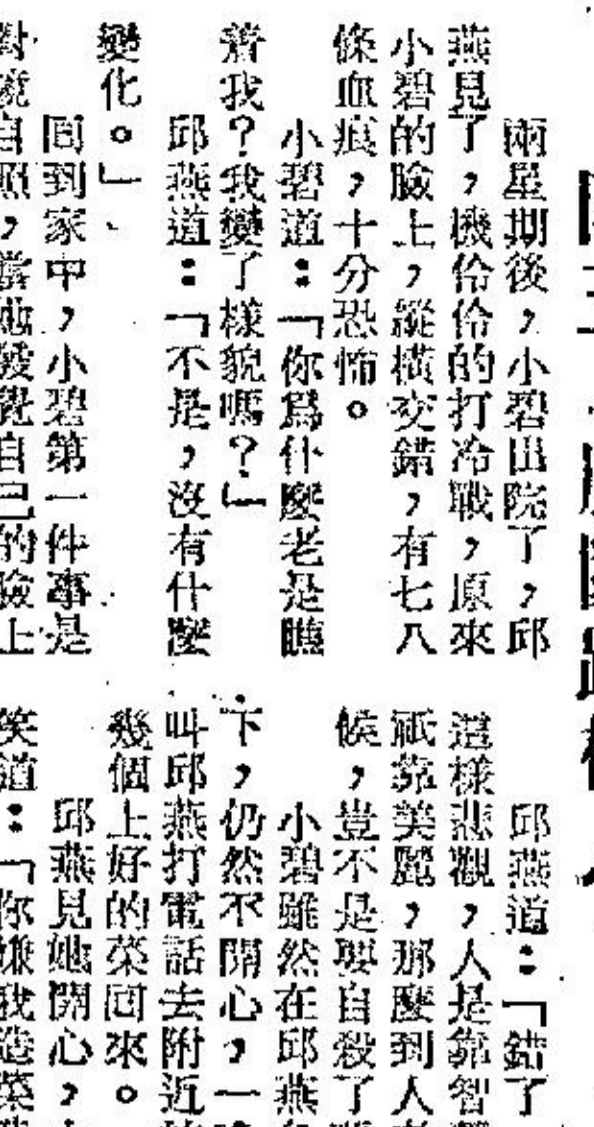 兩星期後，小碧出院了，邱
燕見了，機伶伶的打冷戰，原來
小碧的臉上，縱橫交錯，有七八
條血痕，十分恐怖。
小碧道：「你爲什麼老是瞧
着我？我變了樣貌嗎？」
邱燕道：「不是，沒有什麼
變化。」
囘到家中，小碧第一件事是
對鏡自照，當她發覺自己的臉上
邱燕道：「錯了
這樣悲觀，人是靠智
祇靠美麗，那麼到人
候，豈不是要自殺了
小碧雖然在邱燕
下，仍然不開心，一
叫邱燕打電話去附近
幾個上好的菜囘來。
邱燕見她開心，
笑道：「你嫌我造菜